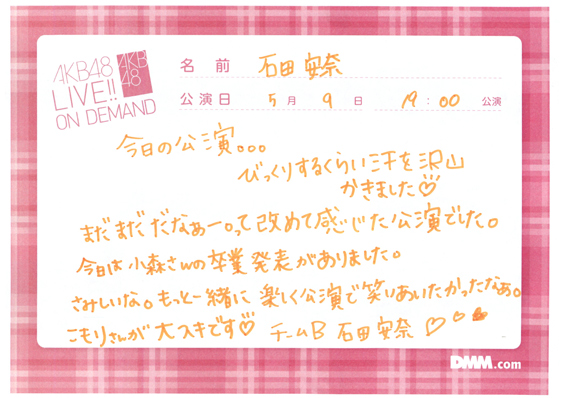 AKB48
LIVE!!
ON DEMAND
AKB
48
名前 石田 安奈
公演日 5月9日 19:00 公演
今日の公演。。。
びっくりするくらい汗を沢山
かきました♡
まだまだだなぁー。って改めて感じた公演でした。
今日は小森さんの卒業発表がありました。
さみしいな。もっと一緒に楽しく公演で笑いあいたかったなぁ。
こもりさんが大スキです♡ チームB 石田安奈 ♡♡♥
DMM.com